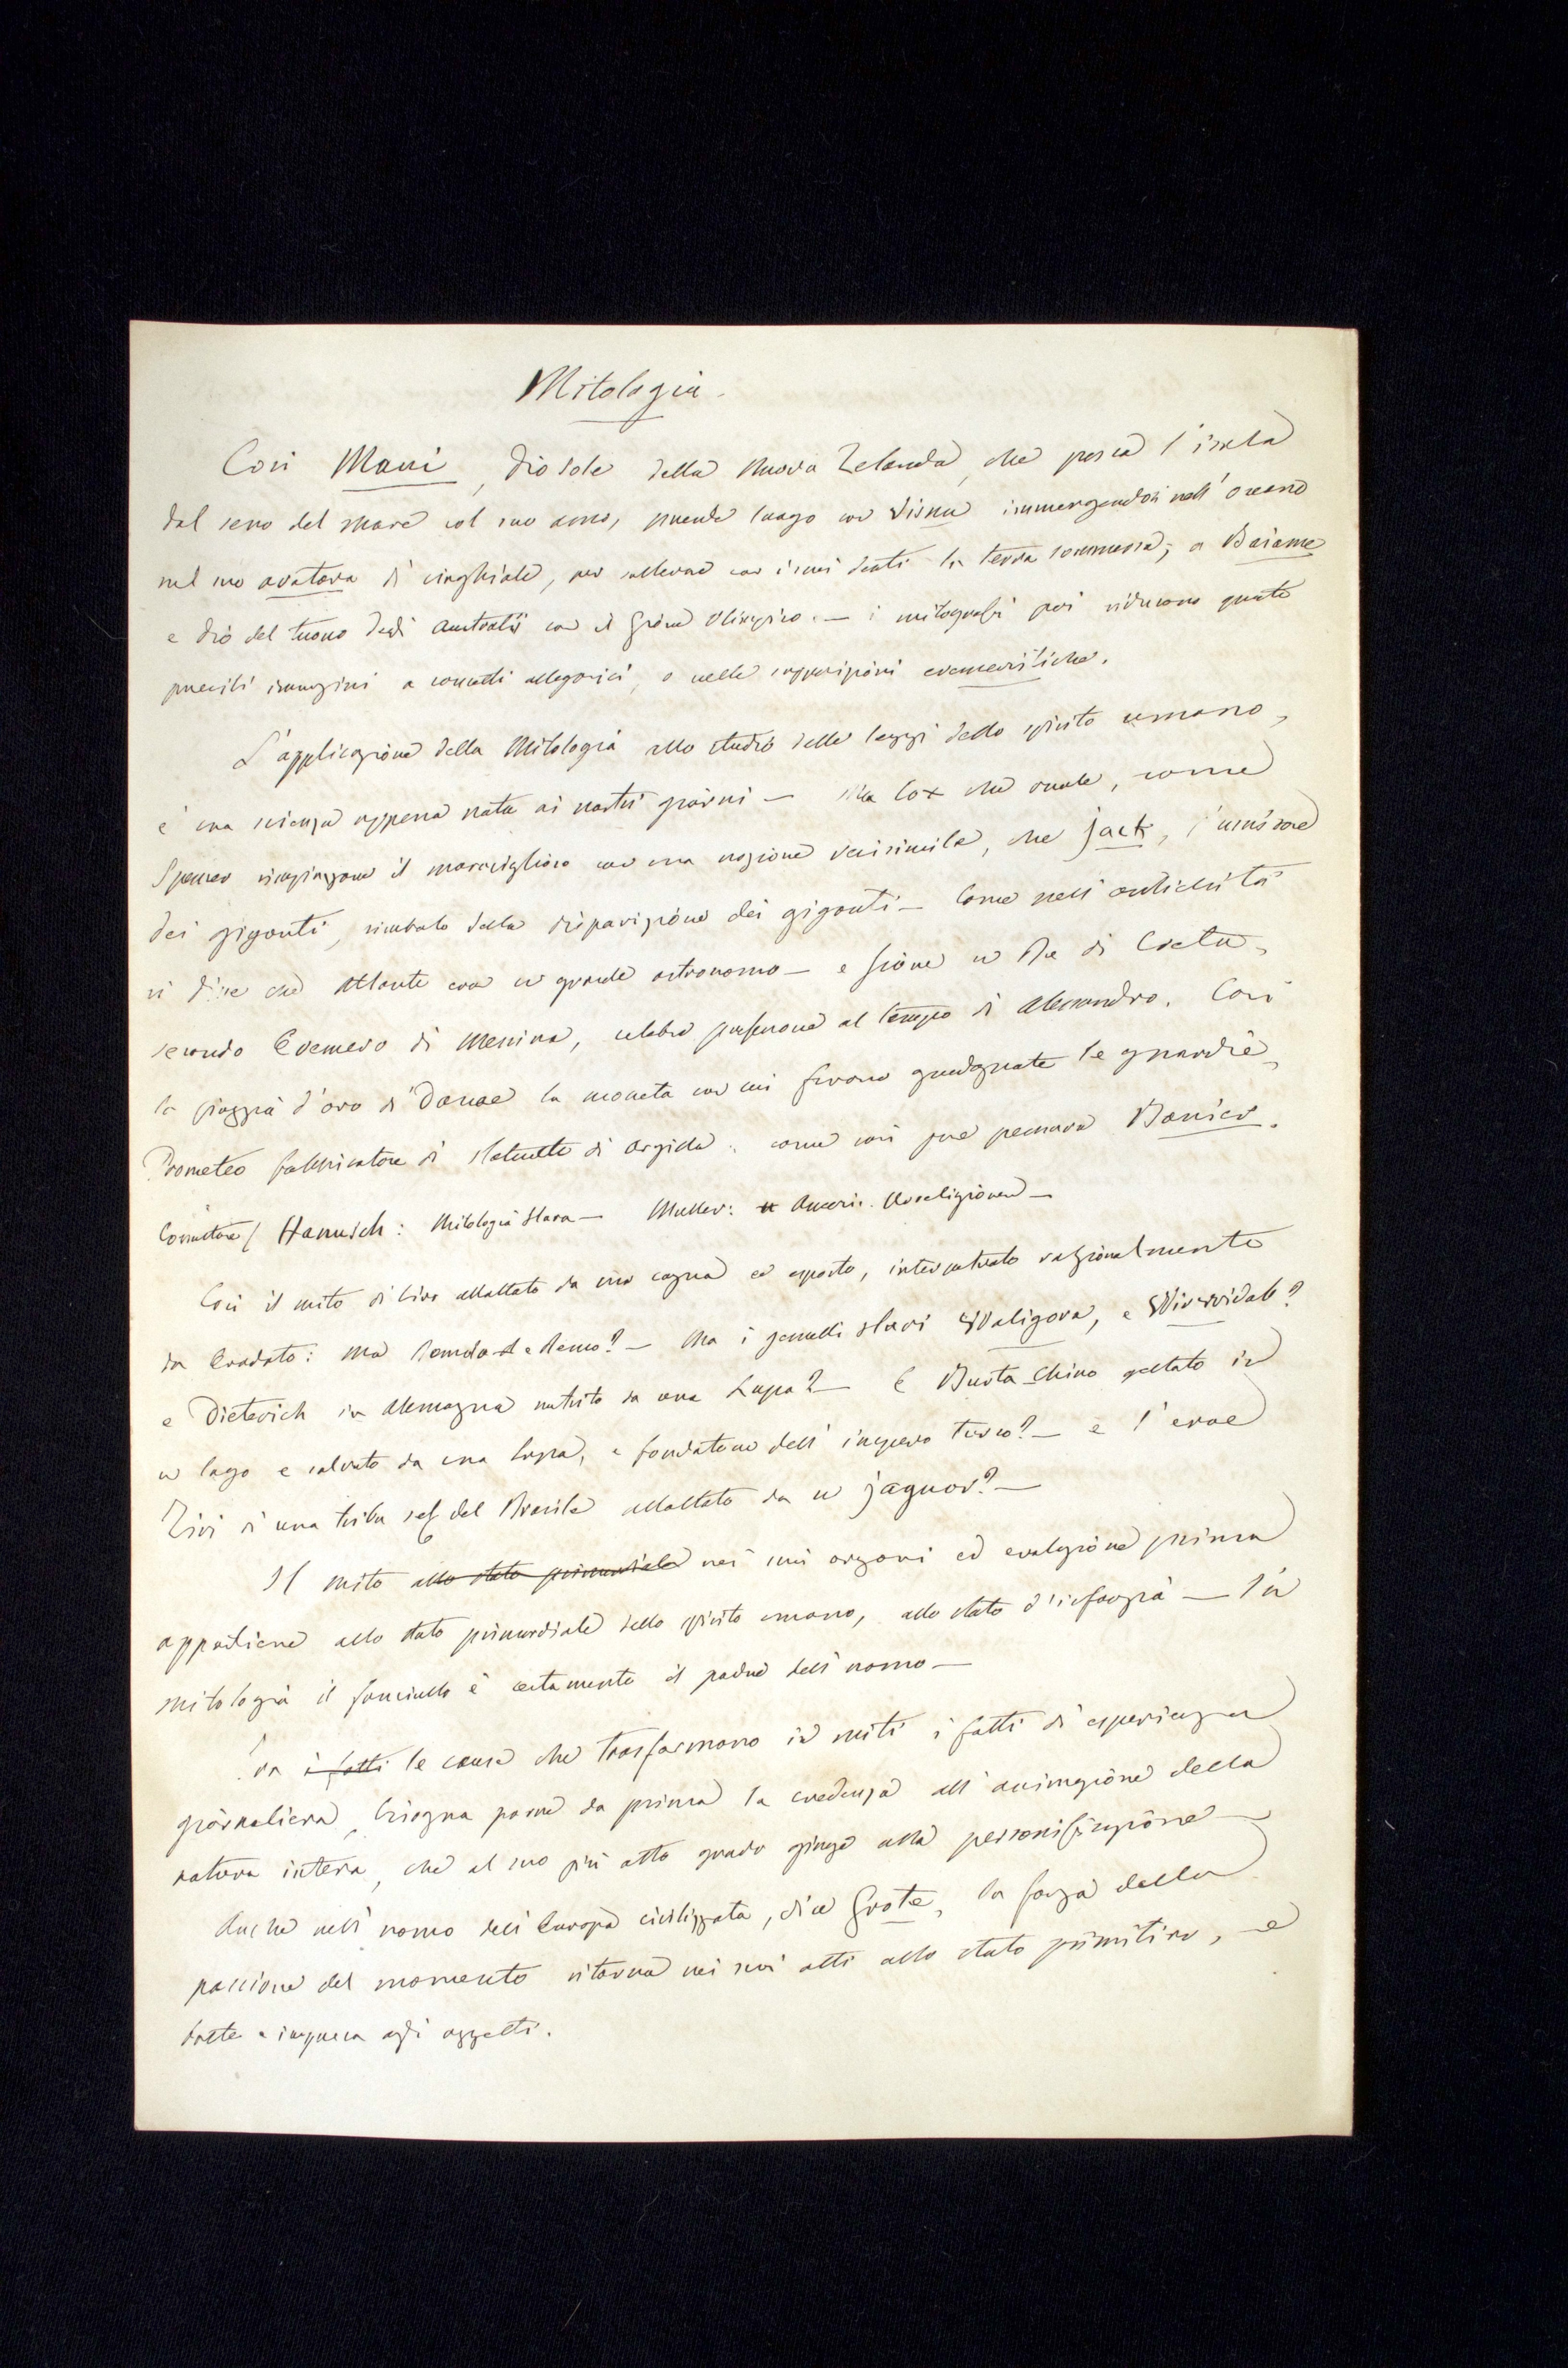 Mitologia.
Così Maui, dio sole della Nuova Zelanda, che pesca l'isola
dal seno del mare col suo amo, prende luogo con Visnu immergendosi nell'oceano
nel suo avatara di cinghiale, per sollevare con i suoi denti la terra sommersa; a Baiame
e dio del tuono degli Australi con il Giove Olimpico. — i mitografi poi riducono queste
precisi immagini a concetti allegorici, o nelle supposizioni evemeristiche.
L'applicazione della Mitologia allo studio delle leggi dello spirito umano,
è una scienza appena nata ai nostri giorni — Ma Cox che vuole, come
Spencer rimpiazzare il maraviglioso con una nozione verisimile, che jack, l'uccisore
dei giganti, simbolo della disparizione dei giganti — Come nell'antichità
si disse che Atlante era un grande astronomo — e Giove un Re di Creta,
secondo Evemero di Messina, celebre professore al tempo di Alessandro. Così
la pioggia d'oro di Danae la moneta con cui furono guadagnate le guardie,
Prometeo fabbricatore di statuette di argilla: come così pure pensava Banier.
Consultare / Hanusch: Mitologia Slava — Muller: Americ. Urreligionen —
Così il mito di Ciro allattato da una cagna ed esposto, interpretato razionalmente
da Erodoto: ma Romolo e Remo? — Ma i gemelli slavi Waligora, e Wirwidab?
e Dieterich in Alemagna nutrito da una Lupa? — E Burta-Chino gettato in
un lago e salvato da una lupa, e fondatore dell'impero turco? — e l'eroe
Zivi di una tribù sel. del Brasile allattato da un jaguar? —
Il mito allo stato primordiale nei suoi organi ed evoluzione prima
appartiene allo stato primordiale dello spirito umano, allo stato d'infanzia — In
mitologia il fanciullo è certamente il padre dell'uomo —
Fra i fatti le cause che trasformano in miti i fatti di esperienza
giornaliera, bisogna porre da prima la credenza all'animazione della
natura intera, che al suo più alto grado giunge alla personificazione —
Anche nell'uomo dell'Europa civilizzata, dice Grote, la forza della
passione del momento ritorna nei suoi atti allo stato primitivo, e
batte e impreca agli oggetti.